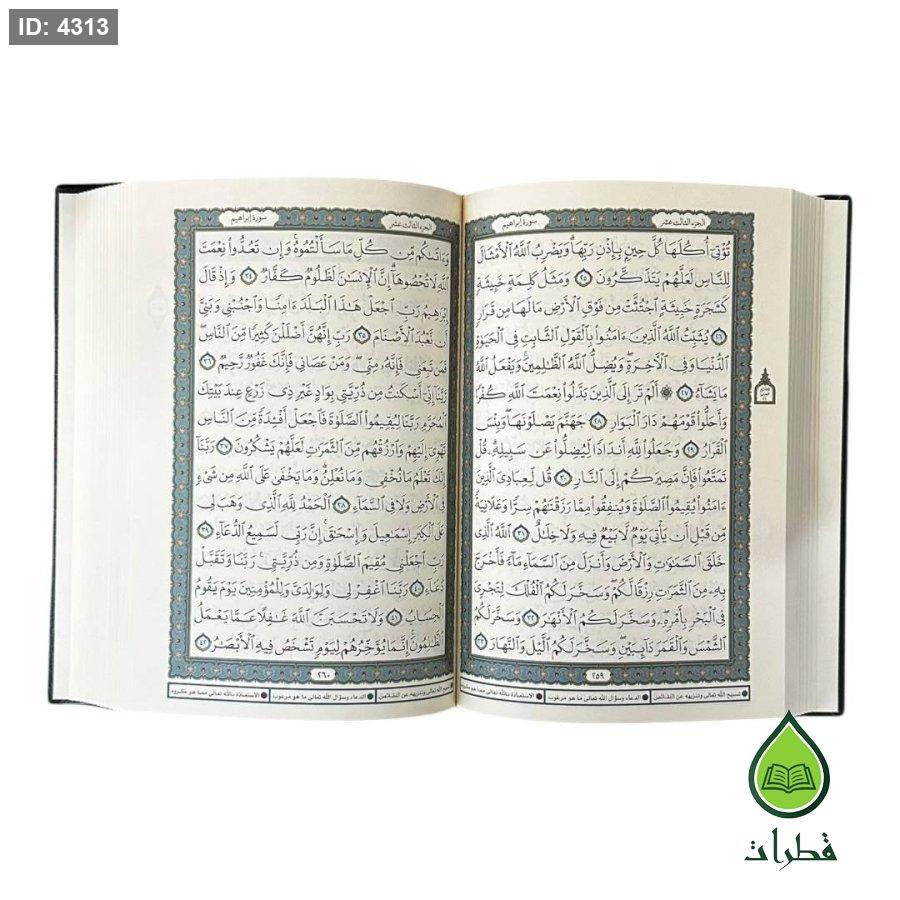 ID: 4313
الجزء الثالث عشر
سورة إبراهيم
تُؤْتِىٓ أُكُلَهَا كُلَّ حِينٍۭ بِإِذْنِ رَبِّهَاۗ وَيَضْرِبُ ٱللَّهُ ٱلْأَمْثَالَ
لِلنَّاسِ لَعَلَّهُمْ يَتَذَكَّرُونَ ٢٥ وَمَثَلُ كَلِمَةٍ خَبِيثَةٍ
كَشَجَرَةٍ خَبِيثَةٍ ٱجْتُثَّتْ مِن فَوْقِ ٱلْأَرْضِ مَا لَهَا مِن قَرَارٍ
٢٦ يُثَبِّتُ ٱللَّهُ ٱلَّذِينَ ءَامَنُوا۟ بِٱلْقَوْلِ ٱلثَّابِتِ فِى ٱلْحَيَوٰةِ
ٱلدُّنْيَا وَفِى ٱلْءَاخِرَةِۖ وَيُضِلُّ ٱللَّهُ ٱلظَّٰلِمِينَۚ وَيَفْعَلُ ٱللَّهُ
مَا يَشَآءُ ٢٧ ۞ أَلَمْ تَرَ إِلَى ٱلَّذِينَ بَدَّلُوا۟ نِعْمَتَ ٱللَّهِ كُفْرًا
وَأَحَلُّوا۟ قَوْمَهُمْ دَارَ ٱلْبَوَارِ ٢٨ جَهَنَّمَ يَصْلَوْنَهَاۖ وَبِئْسَ
ٱلْقَرَارُ ٢٩ وَجَعَلُوا۟ لِلَّهِ أَندَادًا لِّيُضِلُّوا۟ عَن سَبِيلِهِۦۗ قُلْ
تَمَتَّعُوا۟ فَإِنَّ مَصِيرَكُمْ إِلَى ٱلنَّارِ ٣٠ قُل لِّعِبَادِىَ ٱلَّذِينَ
ءَامَنُوا۟ يُقِيمُوا۟ ٱلصَّلَوٰةَ وَيُنفِقُوا۟ مِمَّا رَزَقْنَٰهُمْ سِرًّا وَعَلَانِيَةً
مِّن قَبْلِ أَن يَأْتِىَ يَوْمٌ لَّا بَيْعٌ فِيهِ وَلَا خِلَٰلٌ ٣١ ٱللَّهُ ٱلَّذِى
خَلَقَ ٱلسَّمَٰوَٰتِ وَٱلْأَرْضَ وَأَنزَلَ مِنَ ٱلسَّمَآءِ مَآءً فَأَخْرَجَ
بِهِۦ مِنَ ٱلثَّمَرَٰتِ رِزْقًا لَّكُمْۖ وَسَخَّرَ لَكُمُ ٱلْفُلْكَ لِتَجْرِىَ
فِى ٱلْبَحْرِ بِأَمْرِهِۦۖ وَسَخَّرَ لَكُمُ ٱلْأَنْهَٰرَ ٣٢ وَسَخَّرَ لَكُمُ
ٱلشَّمْسَ وَٱلْقَمَرَ دَآئِبَيْنِۖ وَسَخَّرَ لَكُمُ ٱلَّيْلَ وَٱلنَّهَارَ ٣٣
٢٥٩
تسبيح الله تعالى وتنزيهه عن النقائص ● الدعاء وسؤال الله تعالى ما هو مرغوب ● الاستعاذة بالله تعالى مما هو
الجزء الثالث عشر
سورة إبراهيم
وَءَاتَىٰكُم مِّن كُلِّ مَا سَأَلْتُمُوهُۚ وَإِن تَعُدُّوا۟ نِعْمَتَ
ٱللَّهِ لَا تُحْصُوهَآۗ إِنَّ ٱلْإِنسَٰنَ لَظَلُومٌ كَفَّارٌ ٣٤ وَإِذْ قَالَ
إِبْرَٰهِيمُ رَبِّ ٱجْعَلْ هَٰذَا ٱلْبَلَدَ ءَامِنًا وَٱجْنُبْنِى وَبَنِىَّ
أَن نَّعْبُدَ ٱلْأَصْنَامَ ٣٥ رَبِّ إِنَّهُنَّ أَضْلَلْنَ كَثِيرًا مِّنَ ٱلنَّاسِۖ
فَمَن تَبِعَنِى فَإِنَّهُۥ مِنِّىۖ وَمَنْ عَصَانِى فَإِنَّكَ غَفُورٌ رَّحِيمٌ ٣٦
رَّبَّنَآ إِنِّىٓ أَسْكَنتُ مِن ذُرِّيَّتِى بِوَادٍ غَيْرِ ذِى زَرْعٍ عِندَ بَيْتِكَ
ٱلْمُحَرَّمِ رَبَّنَا لِيُقِيمُوا۟ ٱلصَّلَوٰةَ فَٱجْعَلْ أَفْـِٔدَةً مِّنَ ٱلنَّاسِ
تَهْوِىٓ إِلَيْهِمْ وَٱرْزُقْهُم مِّنَ ٱلثَّمَرَٰتِ لَعَلَّهُمْ يَشْكُرُونَ ٣٧ رَبَّنَآ
إِنَّكَ تَعْلَمُ مَا نُخْفِى وَمَا نُعْلِنُۗ وَمَا يَخْفَىٰ عَلَى ٱللَّهِ مِن شَىْءٍ
فِى ٱلْأَرْضِ وَلَا فِى ٱلسَّمَآءِ ٣٨ ٱلْحَمْدُ لِلَّهِ ٱلَّذِى وَهَبَ لِى
عَلَى ٱلْكِبَرِ إِسْمَٰعِيلَ وَإِسْحَٰقَۚ إِنَّ رَبِّى لَسَمِيعُ ٱلدُّعَآءِ ٣٩
رَبِّ ٱجْعَلْنِى مُقِيمَ ٱلصَّلَوٰةِ وَمِن ذُرِّيَّتِىۚ رَبَّنَا وَتَقَبَّلْ
دُعَآءِ ٤٠ رَبَّنَا ٱغْفِرْ لِى وَلِوَٰلِدَىَّ وَلِلْمُؤْمِنِينَ يَوْمَ يَقُومُ
ٱلْحِسَابُ ٤١ وَلَا تَحْسَبَنَّ ٱللَّهَ غَٰفِلًا عَمَّا يَعْمَلُ
ٱلظَّٰلِمُونَۚ إِنَّمَا يُؤَخِّرُهُمْ لِيَوْمٍ تَشْخَصُ فِيهِ ٱلْأَبْصَٰرُ ٤٢
٢٦٠
تسبيح الله تعالى وتنزيهه عن النقائص ● الدعاء وسؤال الله تعالى ما هو مرغوب ● الاستعاذة بالله تعالى مما هو مكروه
قطرات